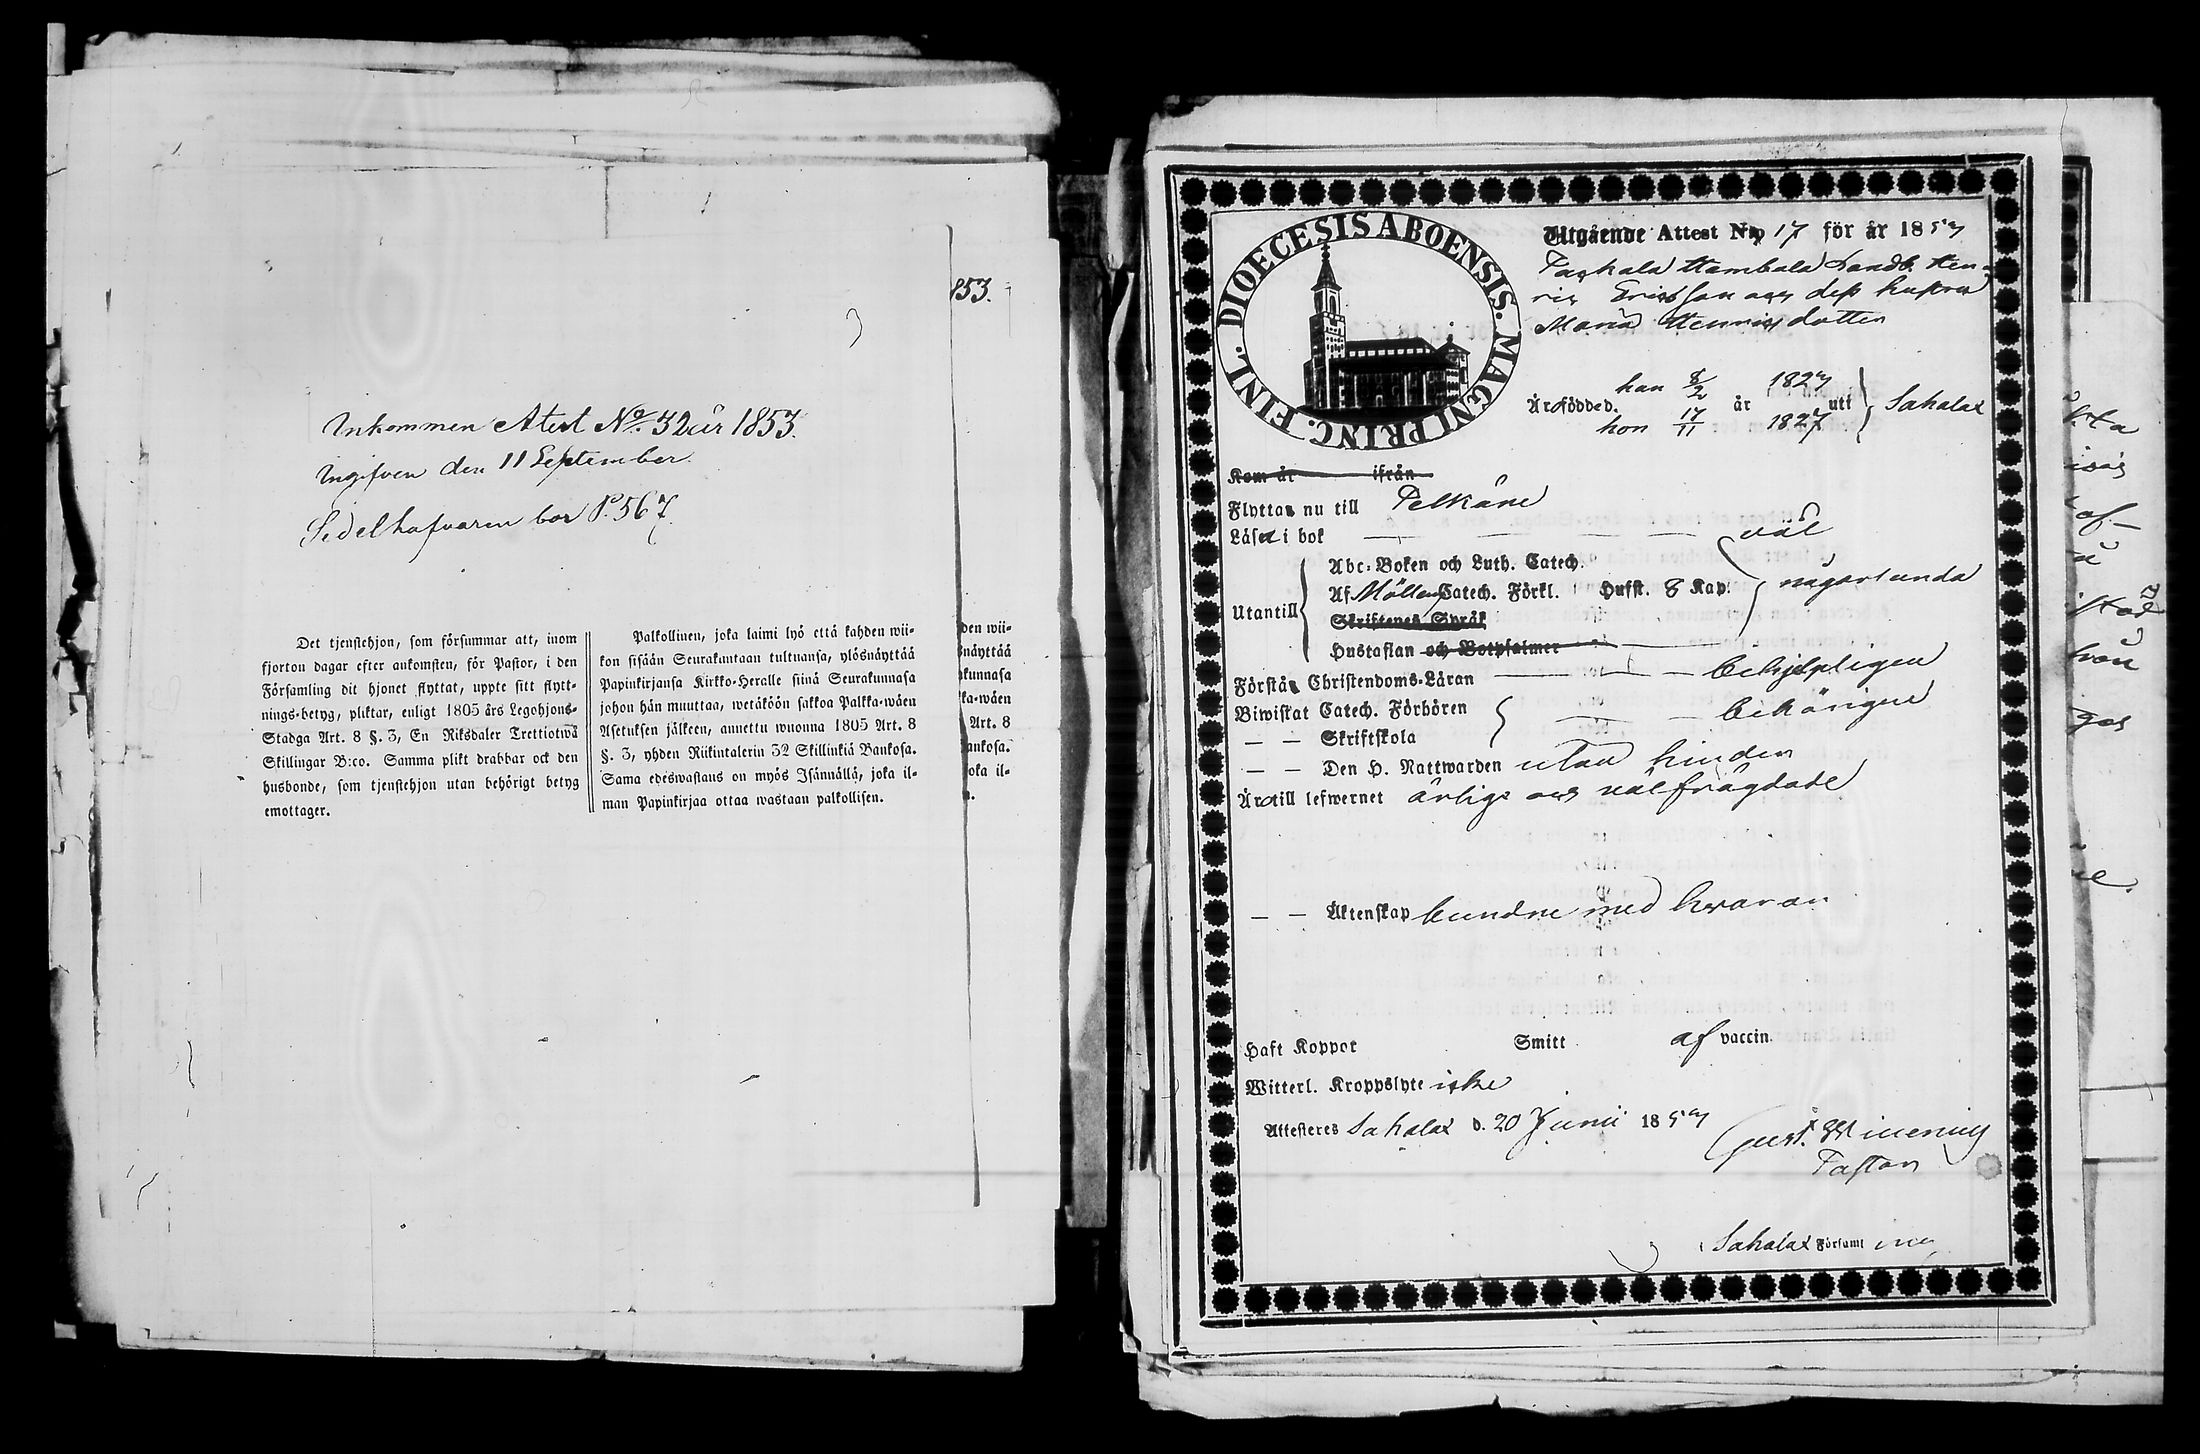 853.
Inkommen Atest No. 32 år 1853.
Ingifven den 11 September.
Sedelhafvaren bor P. 567.
Det tjenstehjon, som försummar att, inom
fjorton dagar efter ankomsten, för Pastor, i den
Församling dit hjonet flyttat, uppte sitt flytt-
nings-betyg, pliktar, enligt 1805 års Legohjons-
Stadga Art. 8 §. 3, En Riksdaler Trettiotwå
Skillingar B:co. Samma plikt drabbar ock den
husbonde, som tjenstehjon utan behörigt betyg
emottager.
Palkollinen, joka laimi lyö että kahden wii-
kon sisään Seurakuntaan tultuansa, ylösnäyttää
Papinkirjansa Kirkko-Heralle siinä Seurakunnasa
johon hän muuttaa, wetäköön sakkoa Palkka-wäen
Asetuksen jälkeen, annettu wuonna 1805 Art. 8
§. 3, yhden Riikintalerin 32 Skillinkiä Bankosa.
Sama edeswastaus on myös Isännällä, joka il-
man Papinkirjaa ottaa wastaan palkollisen.
den wii-
snäyttää
akunnasa
ka-wäen
Art. 8
ankosa.
joka il-
n.
DIOECESIS ABOENSIS. MAGNI PRINC. FINL.
Utgående Attest No 17 för år 1853
Hambala Landb. Hen-
ric Ericsson och dess hustru
Maria Henricsdotter
han 8/2 1823
Äro födde d. år uti Sahalax
hon 17/11 1827
Kom år ifrån
Flyttar nu till Pelkäne
Läser i bok väl
Abc-Boken och Luth. Catech.
Utantill Af Möllers Catech. Förkl. Hufst. 8 Kap. någorlunda
Skriftenes Språk
Hustaflan och Botpsalmer
Förstår Christendoms-Läran behjelpligen
Biwistat Catech. Förhören behörigen
— — Skriftskola
— — Den H. Nattwarden utan hinder
Äro till lefwernet ärliga och välfrägdade
— — Äktenskap bundne med hvaran
Haft Koppor Smitt af vaccin.
Witterl. Kroppslyte icke
Attesteres Sahalax d. 20 Junii 1853
Gust.
Pastor
Sahalax Församl ing